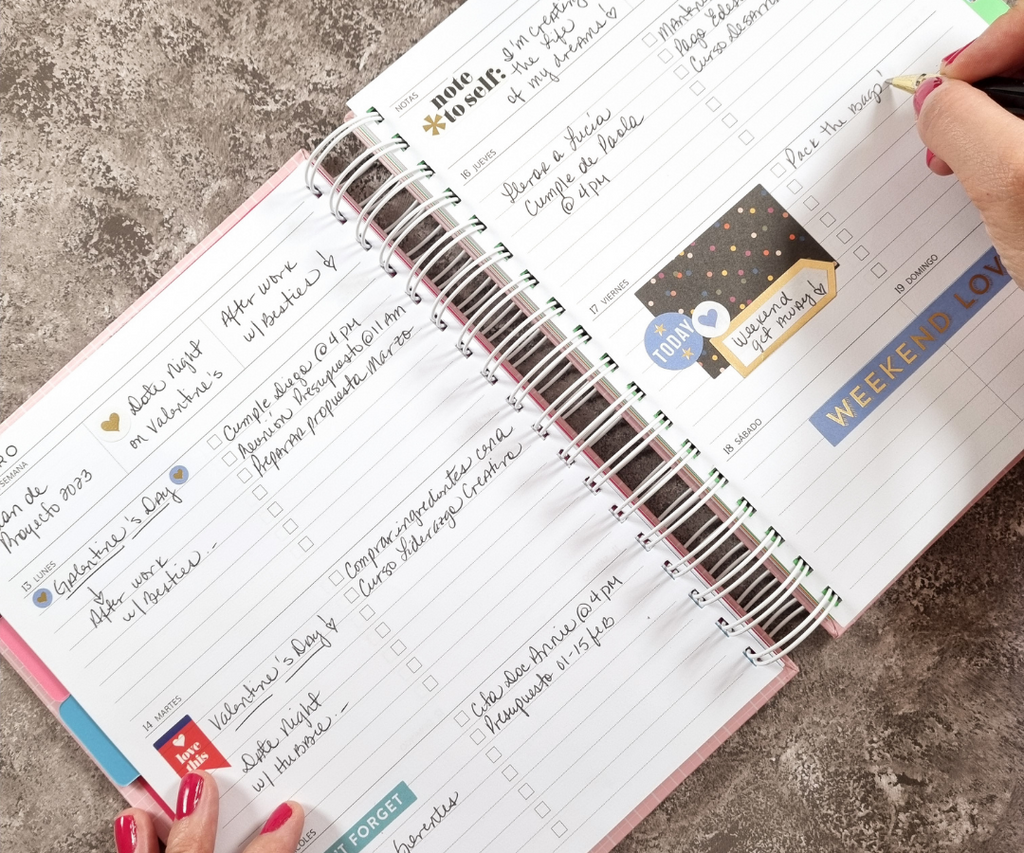 After work
w/ Besties
Date Night
on Valentine's
RO
SEMANA
Proyecto 2023
13 LUNES
Galentine's Day
After work
w/ Besties.-
Cumple Diego @ 4 PM
Reunión Presupuesto @ 11 AM
Preparar propuesta Marzo
14 MARTES
love
this
Valentine's Day!
Date Night
w/ Hubbie.-
Comprar ingredientes cena
Curso Liderazgo Creativo
OLES
T FORGET
Gerentes
Cita Doc Annie @ 4 PM
Presupuesto 01-15 feb
NOTAS
note
to self:
I'm creating
the life
of my dreams!
Pago
Curso
16 JUEVES
Llevar a Lucía
Cumple de Paola
@ 4 PM
17 VIERNES
TODAY
Weekend
get away!
Pack the bags!
18 SÁBADO
19 DOMINGO
WEEKEND LOV